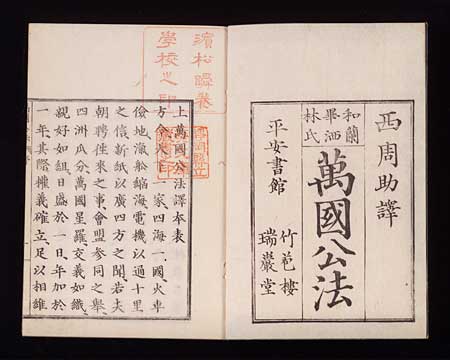 西周助譯
和蘭
畢洒
林氏
萬國公法
平安書館
竹苞樓
瑞巖堂
濱松
學校之印
上萬國公法譯奉表
方今天下一家四海一國火車
地船縮海電機以過十里
之信新紙以廣四方之聞若夫
朝聘往來之事會盟參同之舉
四洲瓜分萬國星羅交義如織
親好如組日盛於一日年加於
一年其際權義確立足以相維